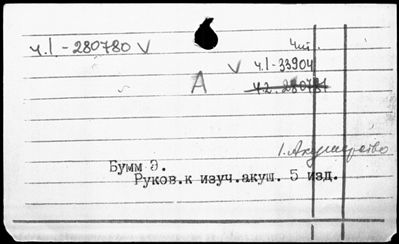 ч.1-280780 V
Чит.
V ч.1-33904
А
ч.2.280781
1. Акушерство
Бумм Э.
Руков.к изуч.акуш. 5 изд.